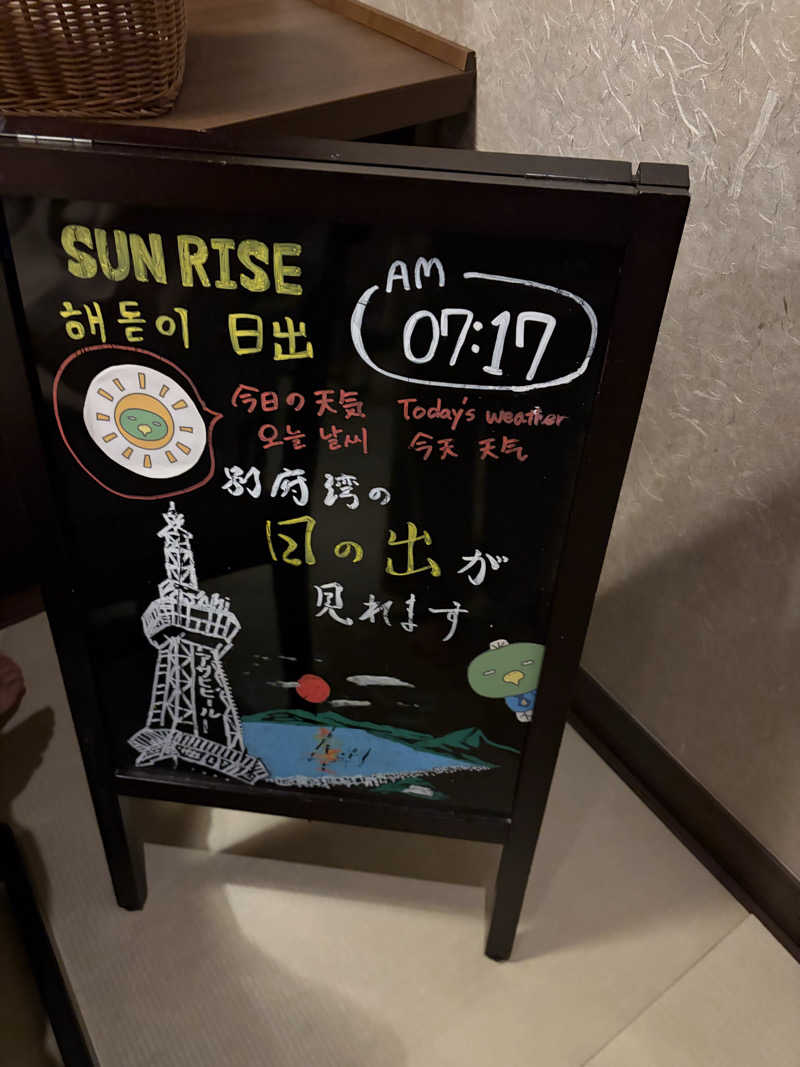 SUN RISE
해돋이 日出
AM
07:17
今日の天気 Today's weather
오늘 날씨 今天 天气
別府湾の
日の出が
見れます
アサヒビール